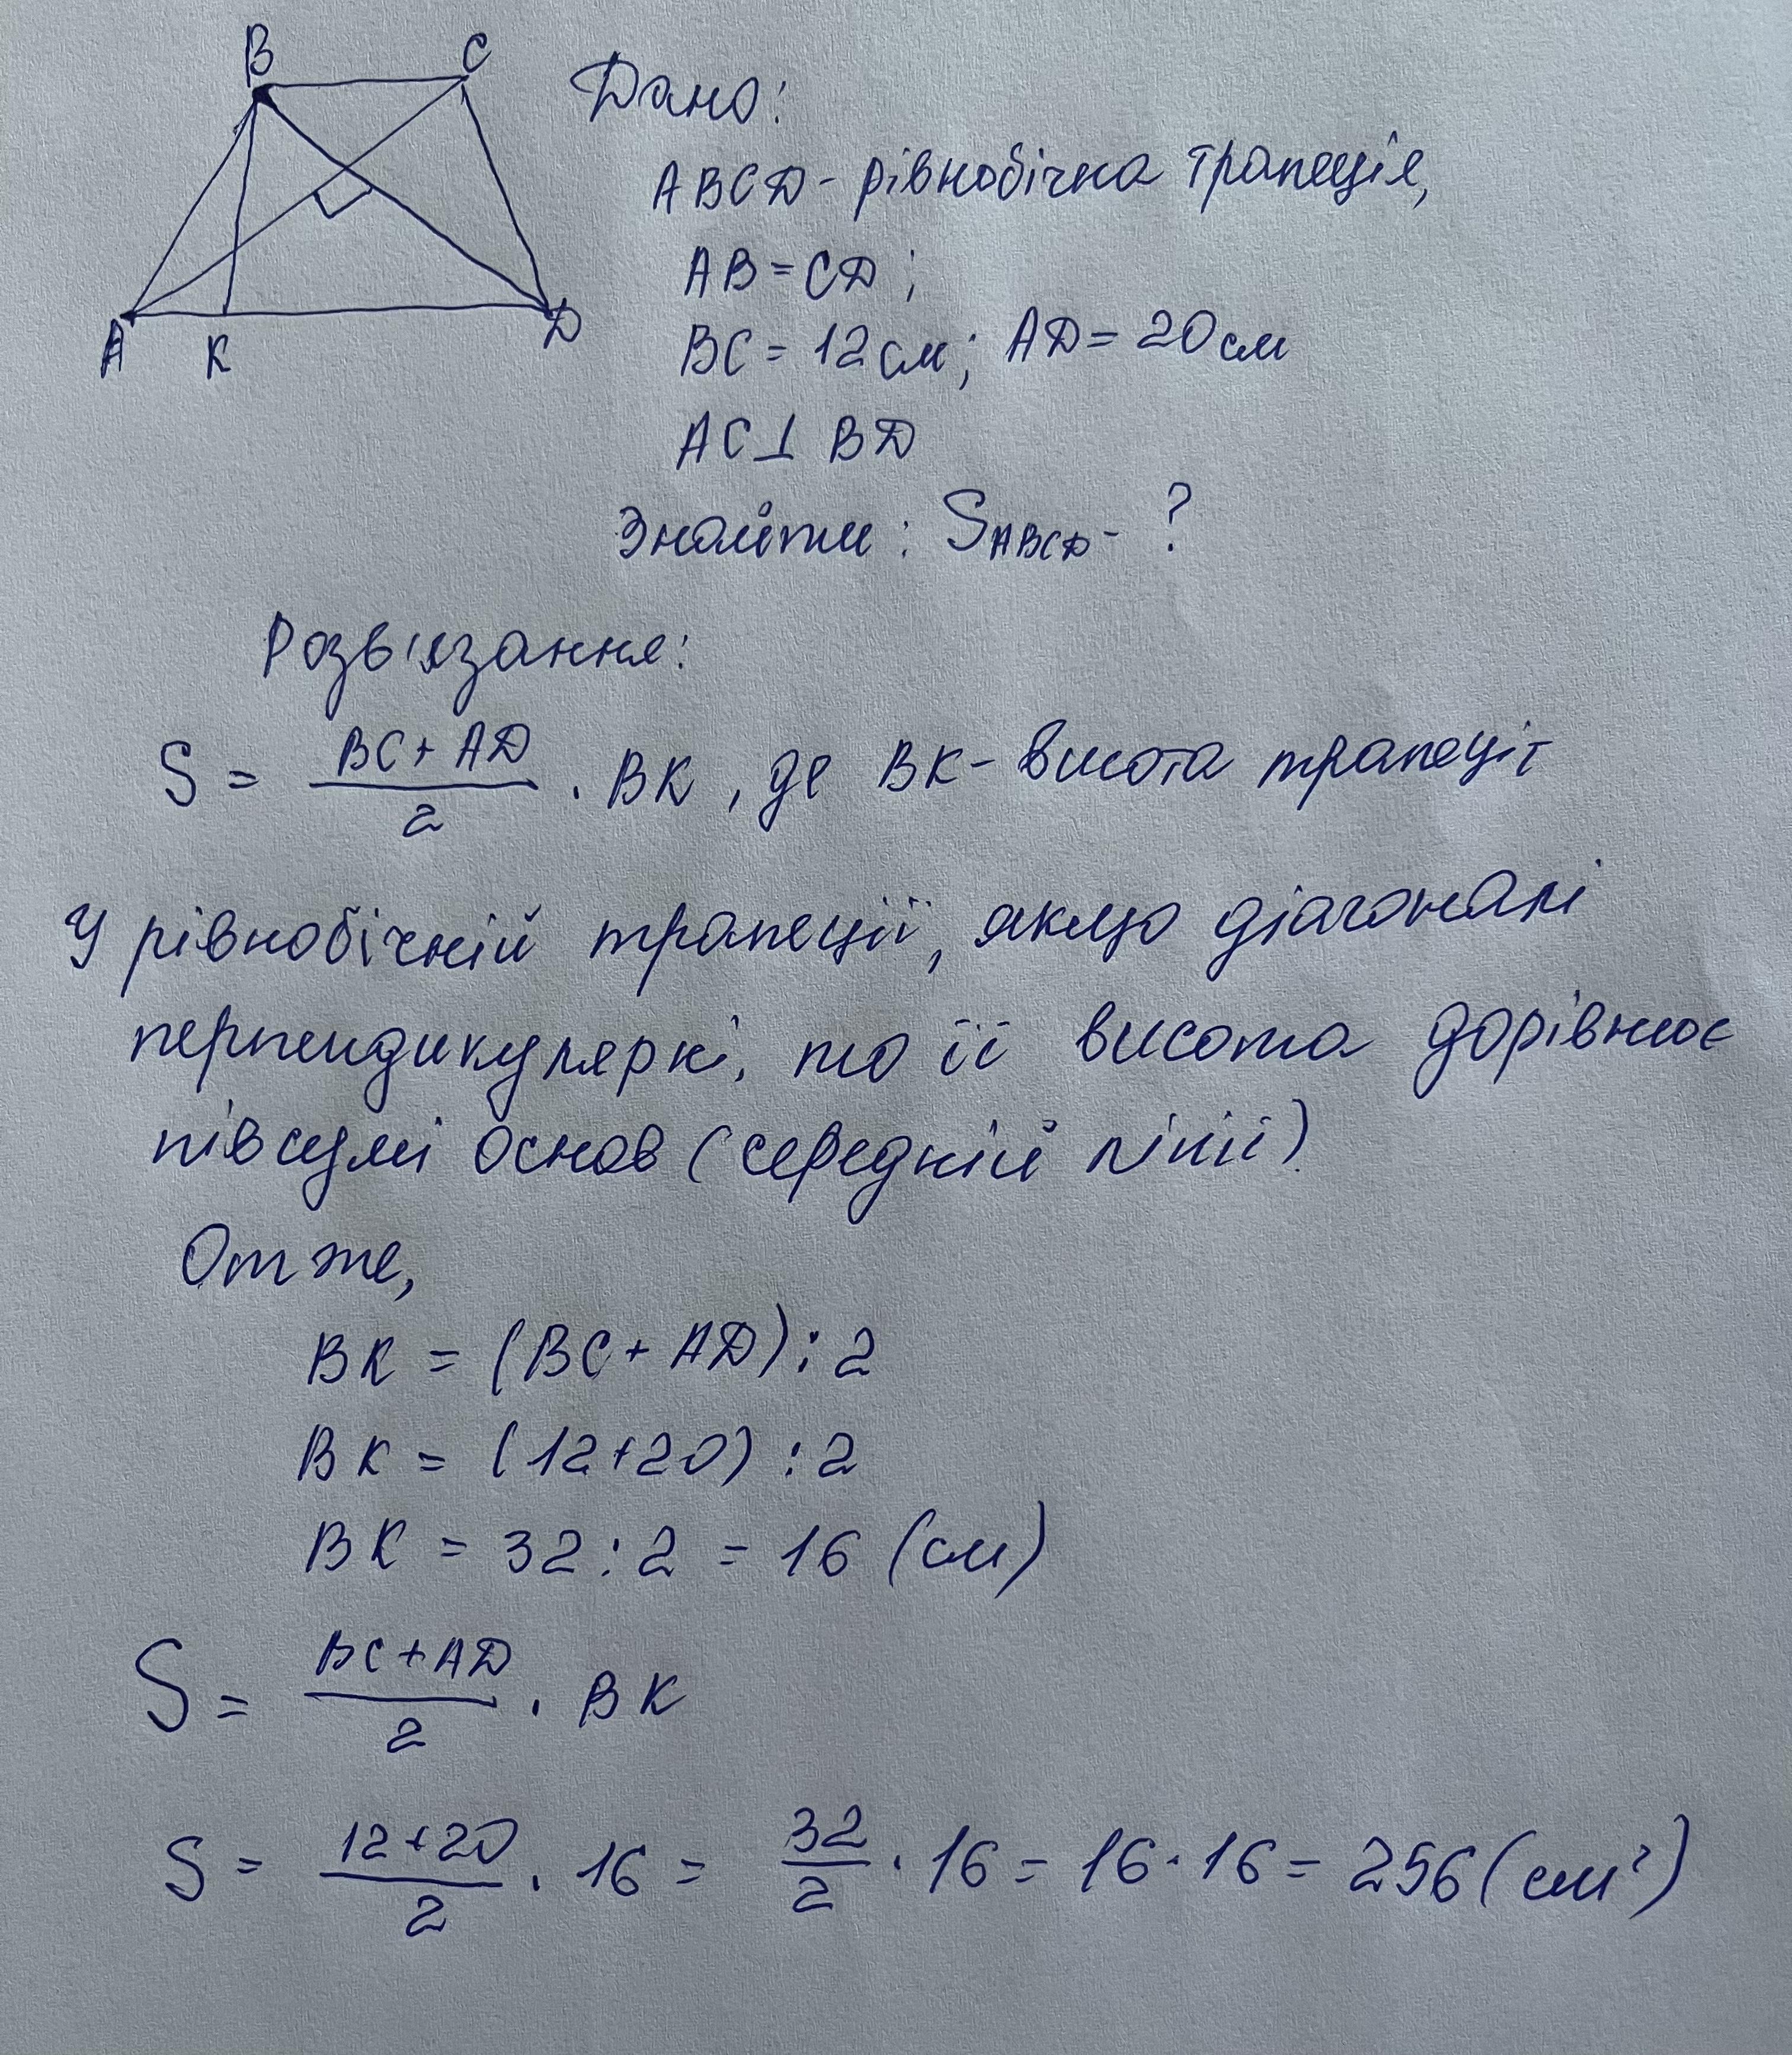 B C
A K D
Дано:
ABCD - рівнобічна трапеція,
AB = CD;
BC = 12 см; AD = 20 см
AC ⊥ BD
Знайти: S_ABCD - ?
Розв'язання:
S = (BC + AD)/2 · BK, де BK - висота трапеції
У рівнобічній трапеції, якщо діагоналі
перпендикулярні, то її висота дорівнює
півсумі основ (середній лінії)
Отже,
BK = (BC + AD) : 2
BK = (12+20) : 2
BK = 32 : 2 = 16 (см)
S = (BC + AD)/2 · BK
S = (12+20)/2 · 16 = 32/2 · 16 = 16 · 16 = 256 (см²)